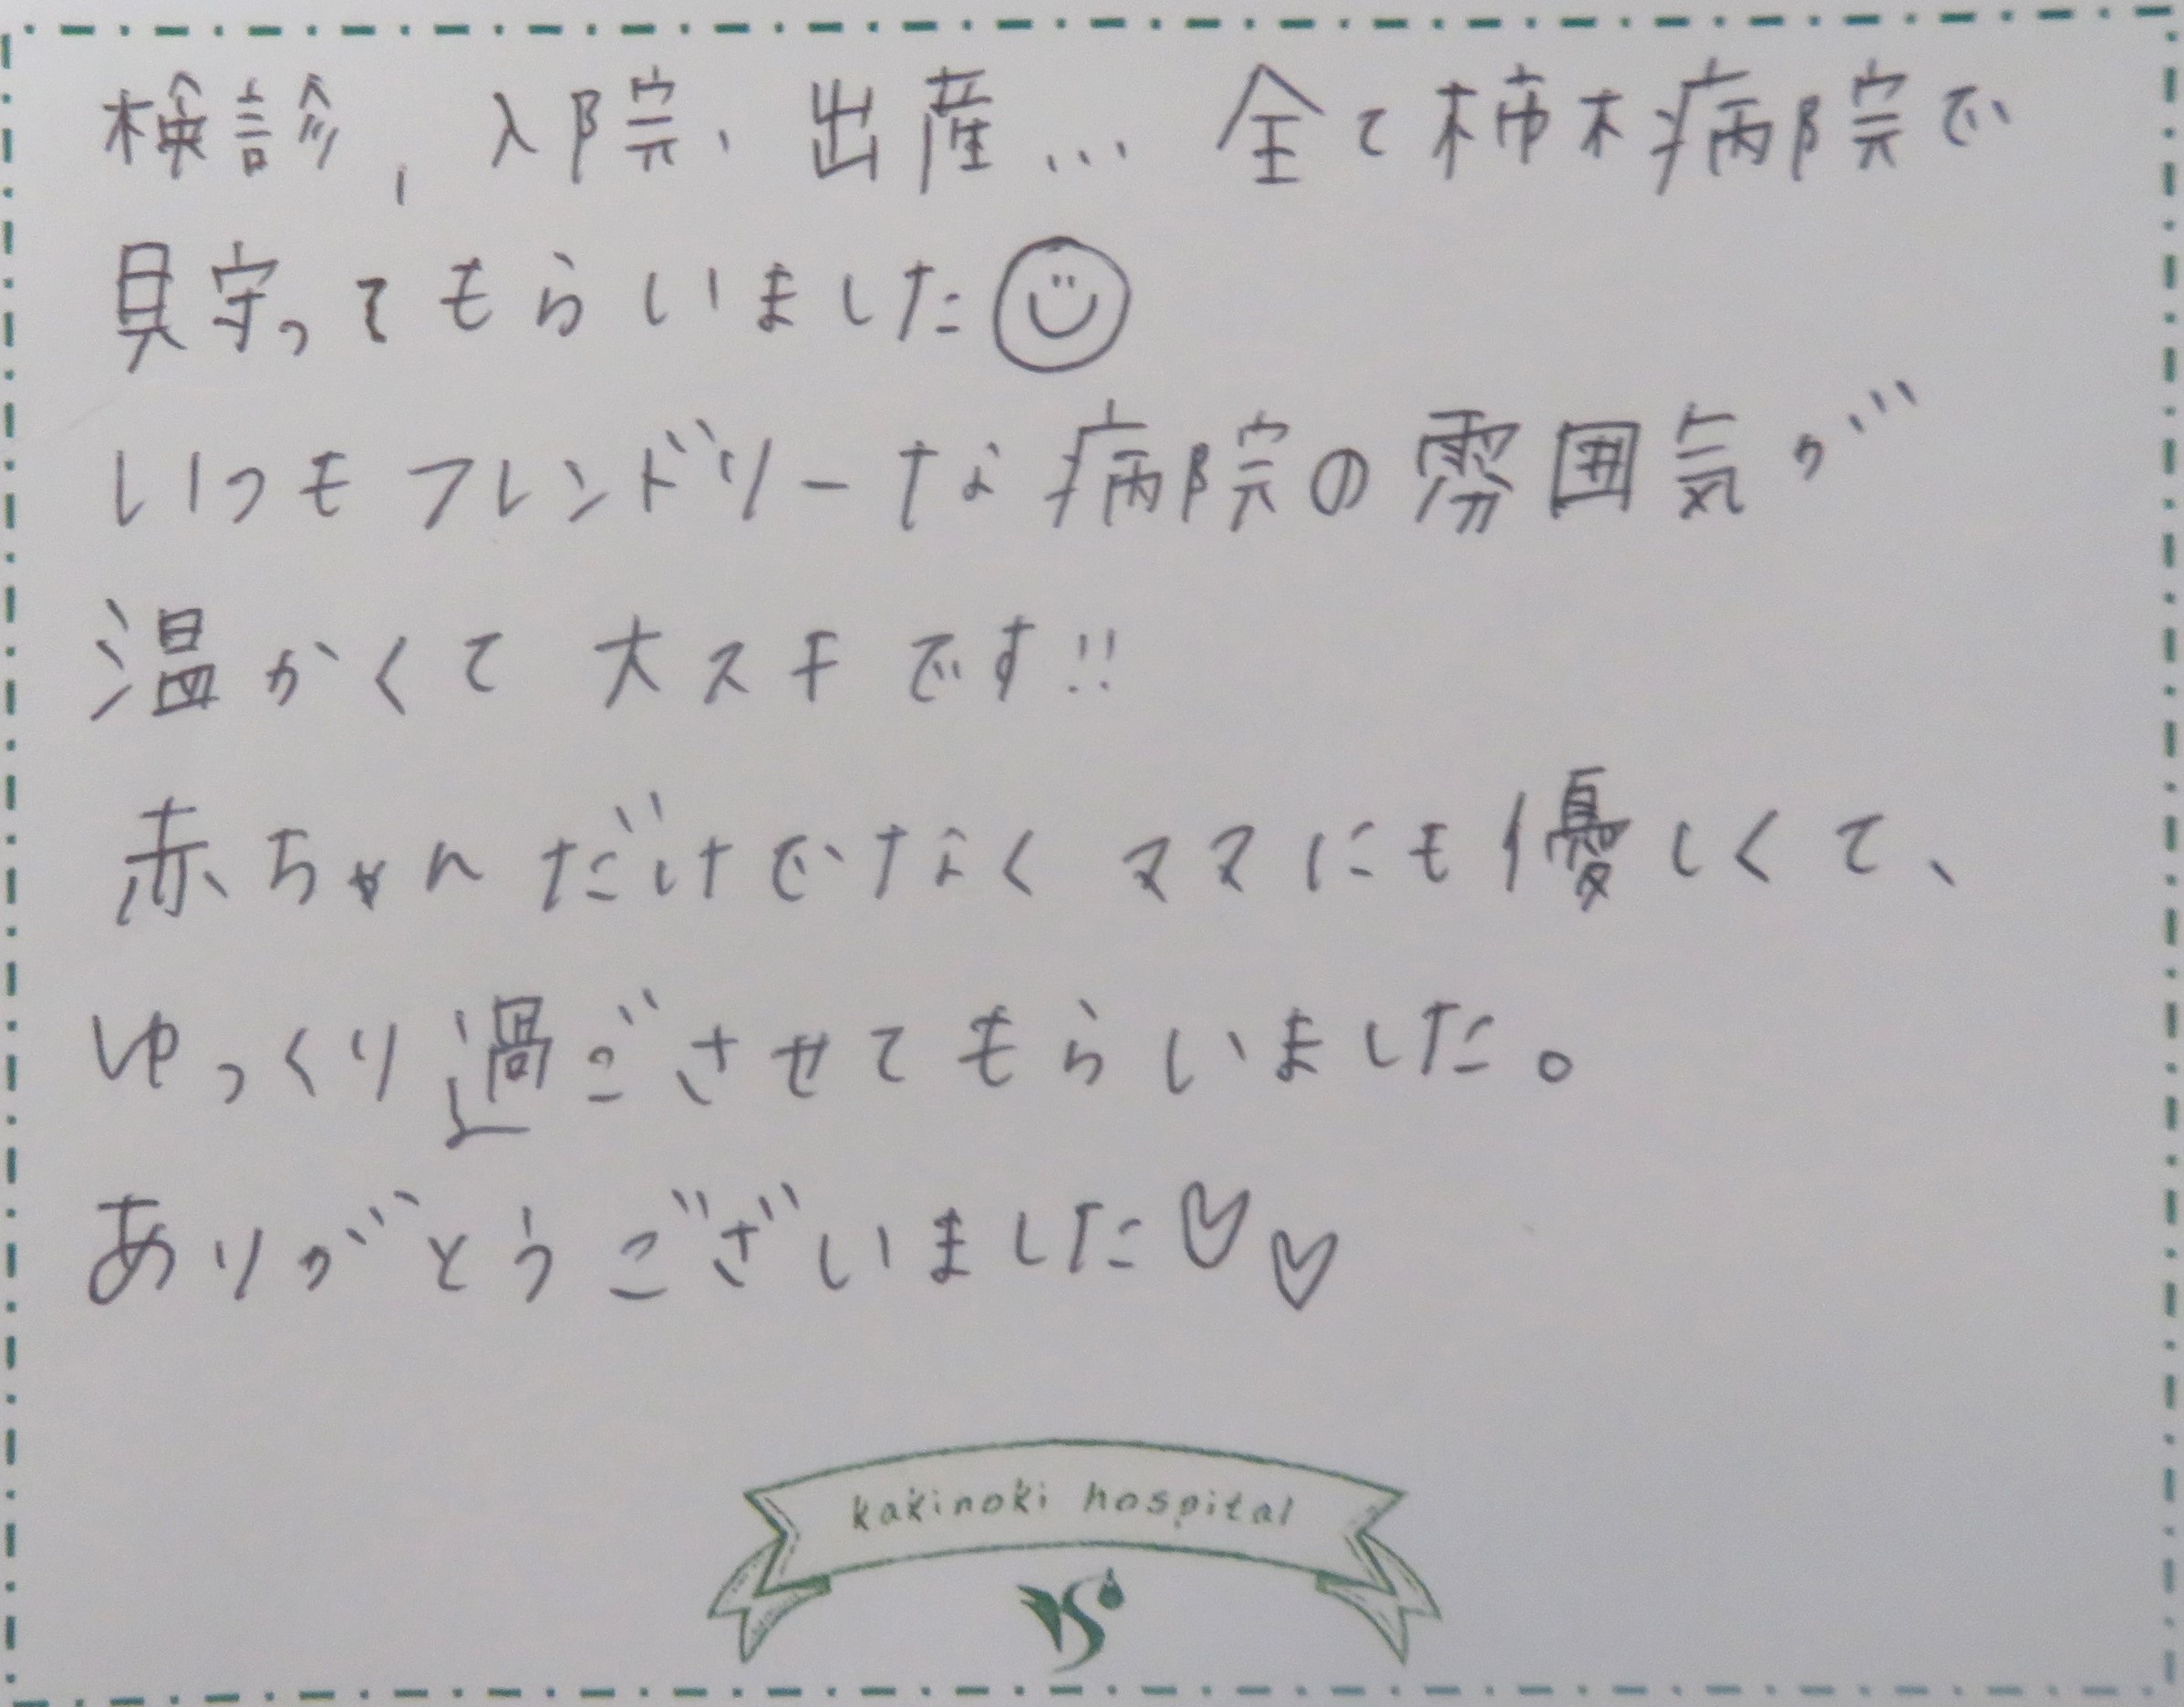 検診、入院、出産... 全て柿木病院で
見守ってもらいました
いつもフレンドリーな病院の雰囲気が
温かくて 大スキです!!
赤ちゃんだけでなくママにも優しくて、
ゆっくり過ごさせてもらいました。
ありがとうございました♡♡
kakinoki hospital